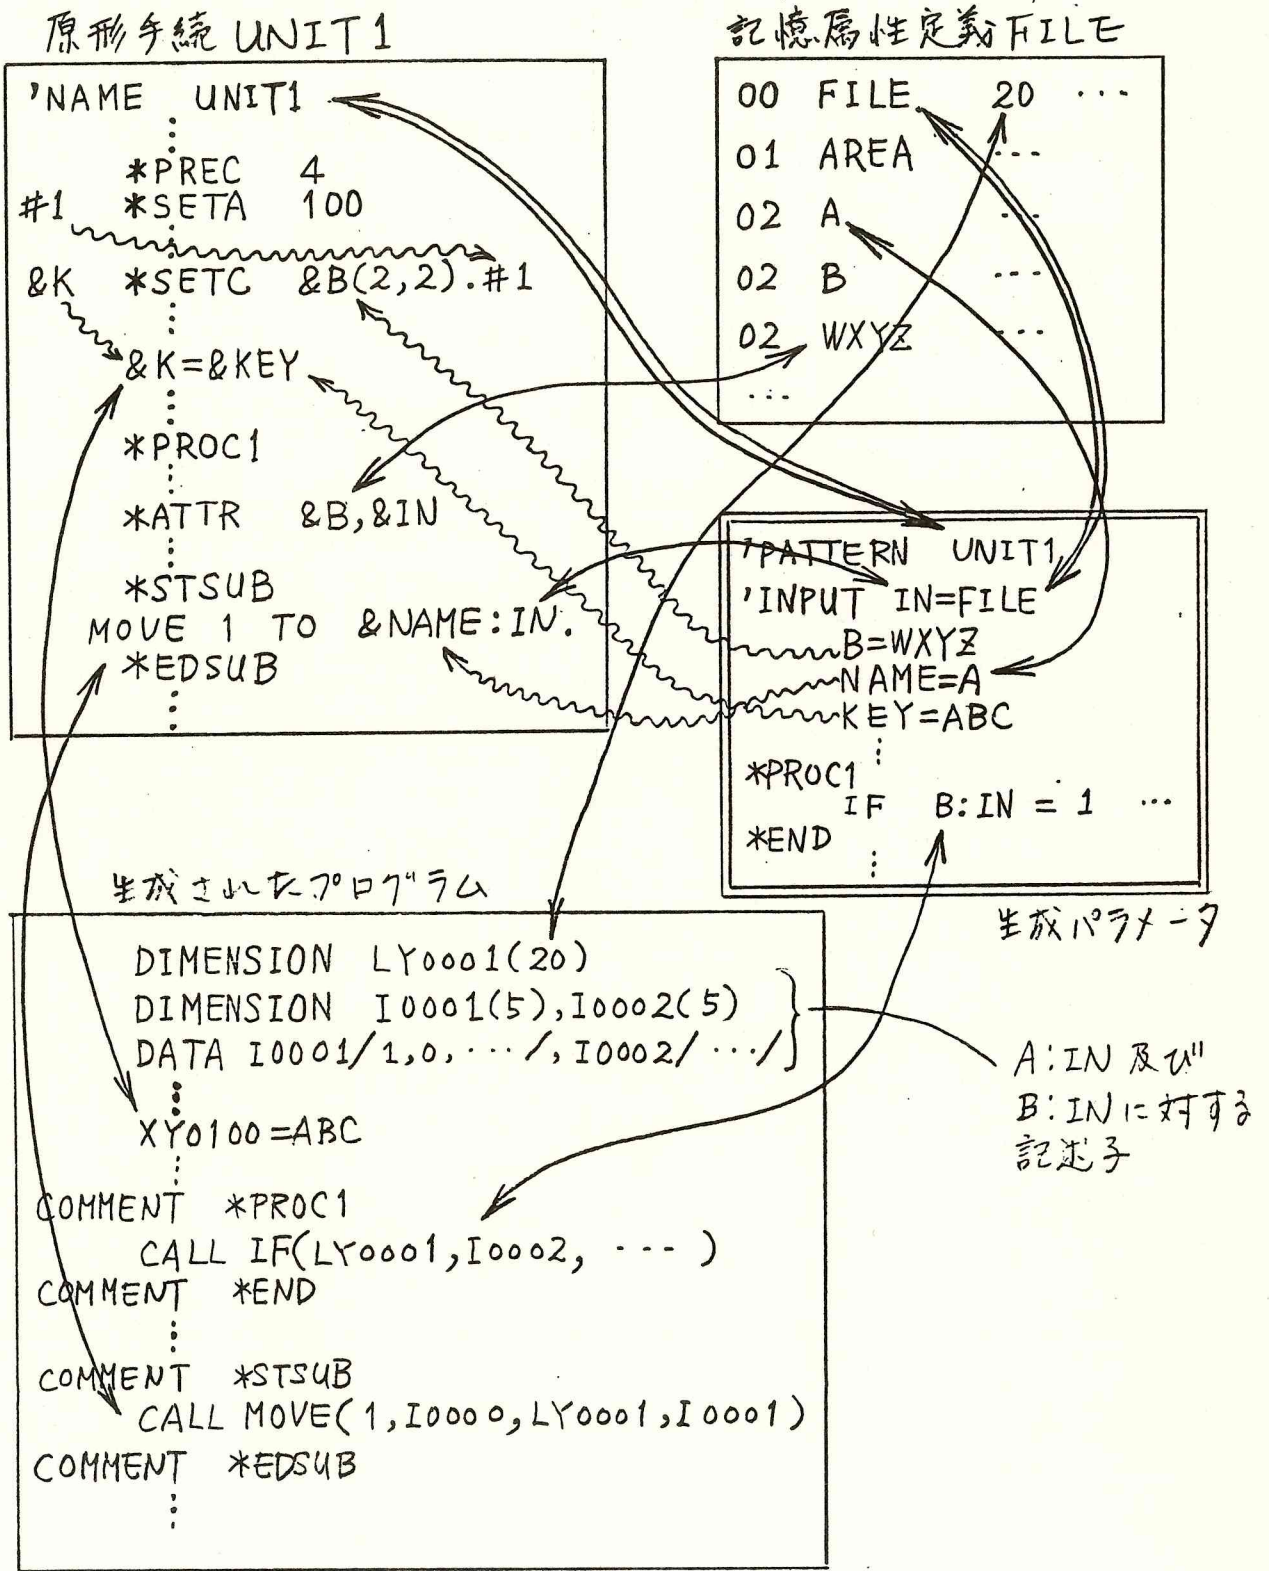 原形手続 UNIT1
'NAME UNIT1
*PREC 4
#1 *SETA 100
&K *SETC &B(2,2).#1
&K=&KEY
*PROC1
*ATTR &B,&IN
*STSUB
MOVE 1 TO &NAME:IN.
*EDSUB
記憶属性定義FILE
00 FILE 20 ...
01 AREA ...
02 A ...
02 B ...
02 WXYZ ...
...
'PATTERN UNIT1
'INPUT IN=FILE
B=WXYZ
NAME=A
KEY=ABC
*PROC1
IF B:IN = 1 ...
*END
生成パラメータ
生成されたプログラム
DIMENSION LY0001(20)
DIMENSION I0001(5),I0002(5)
DATA I0001/1,0,.../,I0002/.../
XY0100=ABC
COMMENT *PROC1
CALL IF(LY0001,I0002, ... )
COMMENT *END
COMMENT *STSUB
CALL MOVE(1,I0000,LY0001,I0001)
COMMENT *EDSUB
A:IN 及び
B:INに対する
記述子